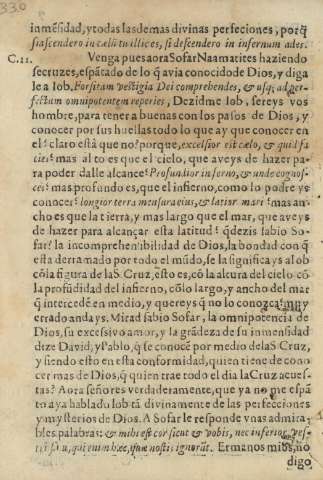 330
inmẽsidad, y todas las demas divinas perfeciones, porq̃
si ascendero in cælũ tu illic es, si descendero in infernum ades.
C.11. Venga pues aora Sofar Naamatites haziendo
se cruzes, espãtado de lo q̃ avia conocido de Dios, y diga
le a Iob. Forsitam vestigia Dei comprehendes, & usq; ad per-
fectum omnipotentem reperies, Dezidme Iob, sereys vos
hombre, para tener a buenos con los pasos de Dios, y
conocer por sus huellas todo lo que ay que conocer en
el? claro està que no? porque, excelsior est cælo, & quid fa
cies? mas alto es que el cielo, que aveys de hazer pa-
ra poder dalle alcance? Profundior inferno, & unde cognos-
ces? mas profundo es, que el infierno, como lo podreys
conocer? longior terra mensura eius, & latior mari? mas an-
cho es que la tierra, y mas largo que el mar, que aveys
de hazer para alcançar esta latitud? q̃ dezis sabio So-
far? la incomprehentibilidad de Dios, la bondad con q̃
esta derramado por todo el mũdo, se la significays al ob
cõ la figura de la S. Cruz, esto es, cõ la altura del cielo cõ
la profũdidad del infierno, cõ lo largo, y ancho del mar
q̃ intercedẽ en medio, y quereys q̃ no lo conozca? muy
errado andays. Mirad sabio Sofar, la omnipotencia de
Dios, su excessivo amor, y la grãdeza de su inmensidad
dize David, y S. Pablo, q̃ se conocẽ por medio de la S. Cruz,
y siendo esto en esta conformidad, quien tiene de cono
cer mas de Dios, q̃ quien trae todo el dia la Cruz acues-
tas? Aora señores verdaderamente, que ya no me espã
to aya hablado Iob tã divinamente de las perfecciones
y mysterios de Dios. A Sofar le responde unas admira-
bles palabras: & mihi est cor sicut & vobis, nec inferior ves-
tri sũ, quis enim hæc, quæ nostis ignorat. Ermanos mios, no
digo